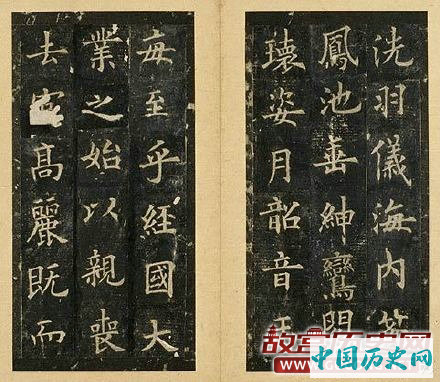 洗羽儀海内
鳳池垂紳鸞閣
瓌姿月韶音
每至乎經國大
業之始以親喪
去高麗既而
中国历史网